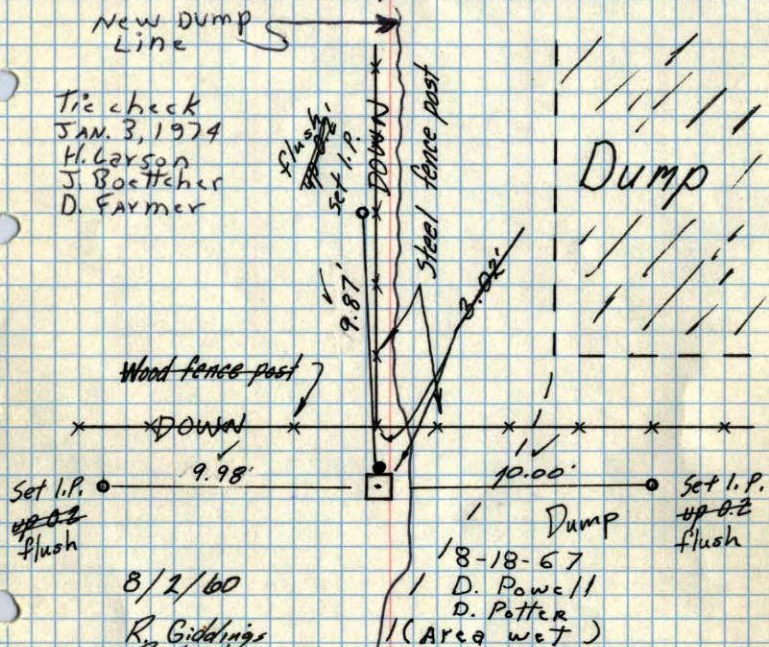 New Dump
Line
Tie check
JAN. 3, 1974
H. Larson
J. Boettcher
D. Farmer
flush
up 0.2'
Set I.P.
DOWN
Steel fence post
Dump
9.87'
3.02'
Wood fence post
DOWN
9.98'
10.00'
Set I.P.
up 0.2
flush
Set I.P.
up 0.2
flush
Dump
8/2/60
R. Giddings
8-18-67
D. Powell
D. Potter
(Area wet)